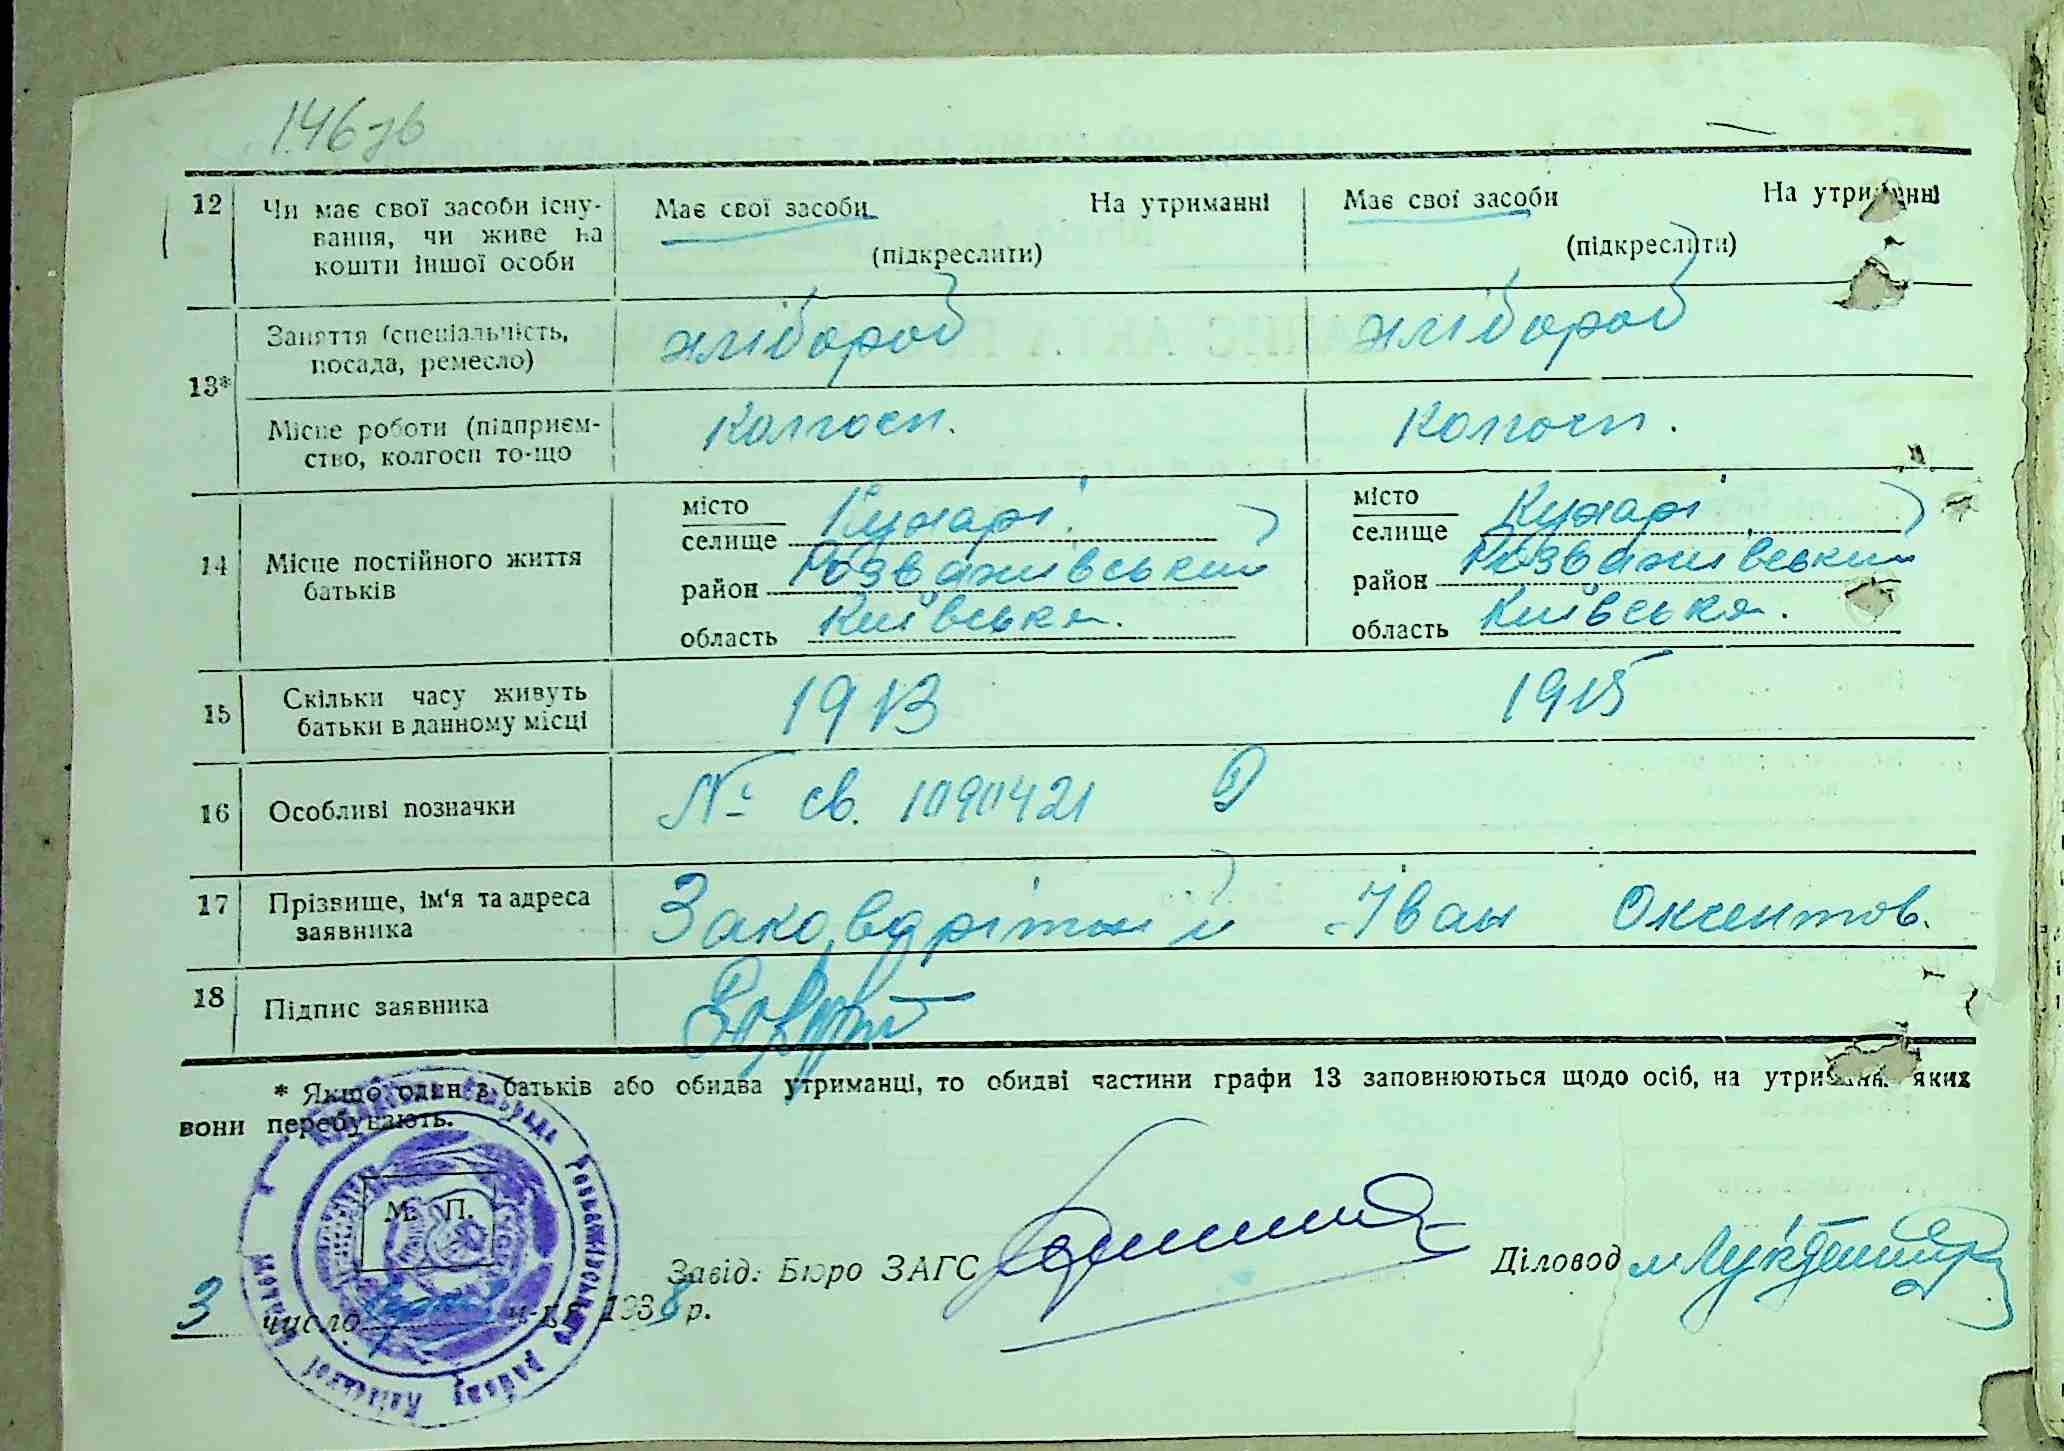 146 зв
12 Чи має свої засоби існу- Має свої засоби На утриманні Має свої засоби На утриманні
вання, чи живе на
кошти іншої особи (підкреслити) (підкреслити)
13* Заняття (спеціальність, хлібороб хлібороб
посада, ремесло)
Місце роботи (підприєм- Колгосп. Колгосп.
ство, колгосп то-що
14 Місце постійного життя батьків
місто
селище Кухарі. місто
селище Кухарі
район Розважівський район Розважівський
область Київська. область Київська.
15 Скільки часу живуть 1913 1915
батьки в данному місці
16 Особливі позначки № св. 1090421
17 Прізвище, ім'я та адреса Заковоритний Іван Оксентов.
заявника
18 Підпис заявника
* Якщо один з батьків або обидва утриманці, то обидві частини графи 13 заповнюються щодо осіб, на утриманні яких
вони перебувають.
М. П.
Завід. Бюро ЗАГС Діловод
3 число м-ця 1938 р.
Розважівського району Київської області